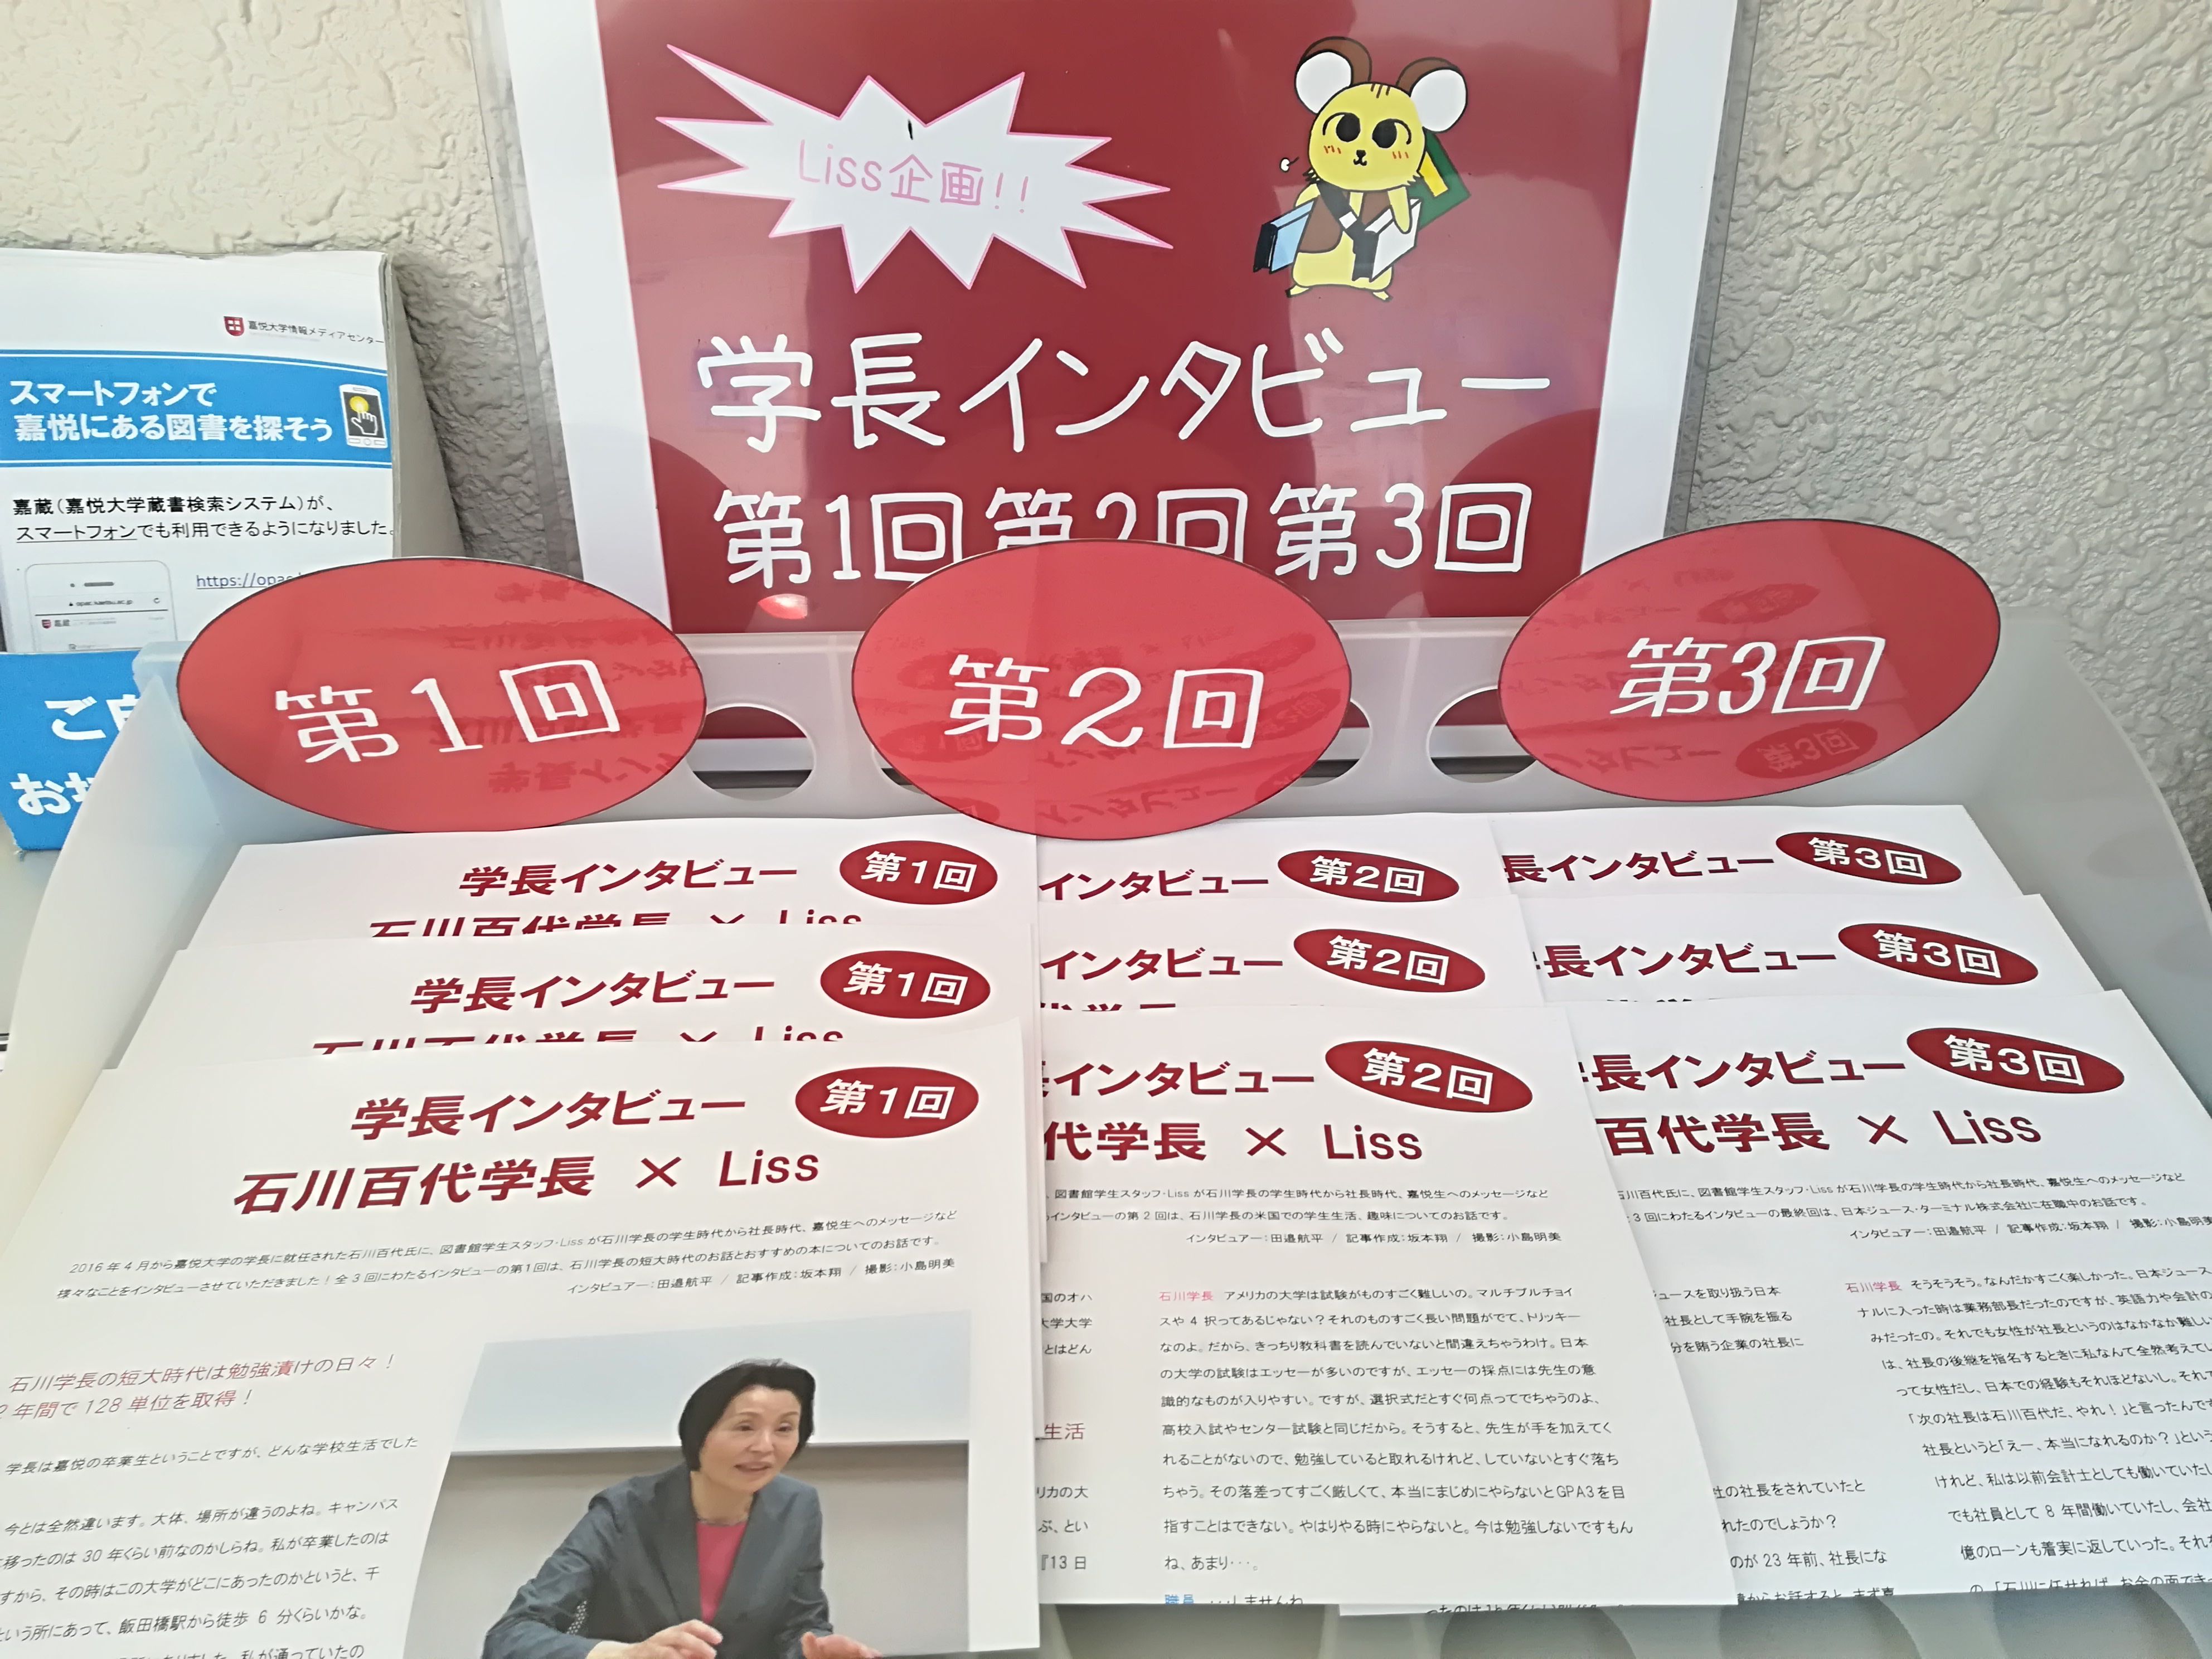 Liss企画!!
学長インタビュー
第1回 第2回 第3回
嘉悦大学情報メディアセンター
スマートフォンで
嘉悦にある図書を探そう
嘉蔵(嘉悦大学蔵書検索システム)が、
スマートフォンでも利用できるようになりました。
第1回
第2回
第3回
学長インタビュー 第1回
石川百代学長 × Liss
学長インタビュー 第1回
石川百代学長 × Liss
学長インタビュー 第1回
石川百代学長 × Liss
2016年4月から嘉悦大学の学長に就任された石川百代氏に、図書館学生スタッフ・Lissが石川学長の学生時代から社長時代、嘉悦生へのメッセージなど
様々なことをインタビューさせていただきました!全3回にわたるインタビューの第1回は、石川学長の短大時代のお話とおすすめの本についてのお話です。
インタビュアー:田邉航平 / 記事作成:坂本翔 / 撮影:小島明美
石川学長の短大時代は勉強漬けの日々!
2年間で128単位を取得!
学長は嘉悦の卒業生ということですが、どんな学校生活でした
今とは全然違います。大体、場所が違うのよね。キャンパス
移ったのは30年くらい前なのかしらね。私が卒業したのは
すから、その時はこの大学がどこにあったのかというと、千
という所にあって、飯田橋駅から徒歩6分くらいかな。
私が通っていたの
インタビュー 第2回
インタビュー 第2回
長インタビュー 第2回
代学長 × Liss
図書館学生スタッフ・Lissが石川学長の学生時代から社長時代、嘉悦生へのメッセージなど
インタビューの第2回は、石川学長の米国での学生生活、趣味についてのお話です。
インタビュアー:田邉航平 / 記事作成:坂本翔 / 撮影:小島明美
国のオハ
大学大学
とはどん
生活
リカの大
ぶ、とい
『13日
石川学長 アメリカの大学は試験がものすごく難しいの。マルチプルチョイ
スや4択ってあるじゃない?それのものすごく長い問題がでて、トリッキー
なのよ。だから、きっちり教科書を読んでいないと間違えちゃうわけ。日本
の大学の試験はエッセーが多いのですが、エッセーの採点には先生の意
識的なものが入りやすい。ですが、選択式だとすぐ何点ってでちゃうのよ、
高校入試やセンター試験と同じだから。そうすると、先生が手を加えてく
れることがないので、勉強していると取れるけれど、していないとすぐ落ち
ちゃう。その落差ってすごく厳しくて、本当にまじめにやらないとGPA3を目
指すことはできない。やはりやる時にやらないと。今は勉強しないですもん
ね、あまり・・・。
職員 ・・・しませんね
長インタビュー 第3回
長インタビュー 第3回
長インタビュー 第3回
百代学長 × Liss
石川百代氏に、図書館学生スタッフ・Lissが石川学長の学生時代から社長時代、嘉悦生へのメッセージなど
3回にわたるインタビューの最終回は、日本ジュース・ターミナル株式会社に在職中のお話です。
インタビュアー:田邉航平 / 記事作成:坂本翔 / 撮影:小島明美
ュースを取り扱う日本
社長として手腕を振る
分を賄う企業の社長に
社の社長をされていたと
れたのでしょうか?
のが23年前、社長にな
石川学長 そうそうそう。なんだかすごく楽しかった。日本ジュース
ナルに入った時は業務部長だったのですが、英語力や会計の
みだったの。それでも女性が社長というのはなかなか難しい
は、社長の後継を指名するときに私なんて全然考えてい
って女性だし、日本での経験もそれほどないし。それで
「次の社長は石川百代だ、やれ!」と言ったんです
社長というと「えー、本当になれるのか?」という
けれど、私は以前会計士としても働いていたし
でも社員として8年間働いていたし、会社
億のローンも着実に返していった。それ